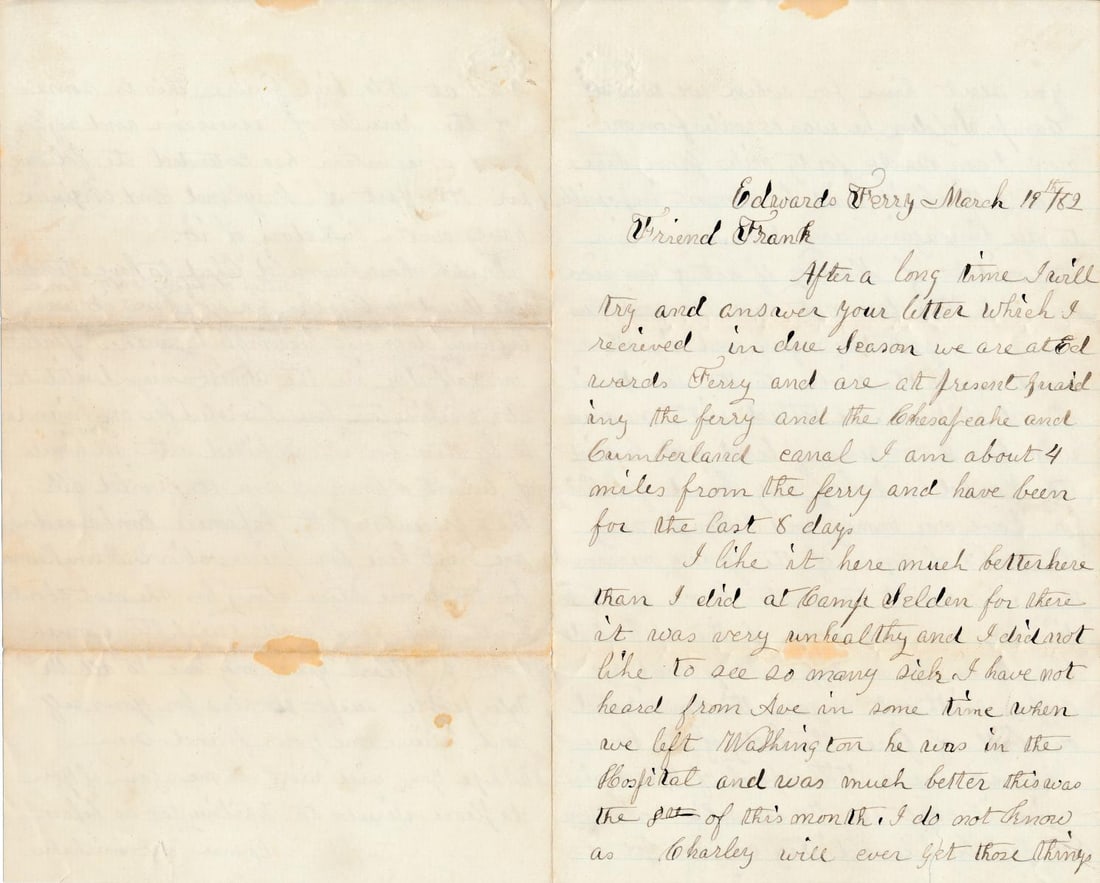 Edwards Ferry March 19th /62
Friend Frank
After a long time I will
try and answer your letter which I
recieved in due Season we are at Ed
wards Ferry and are at present guard
ing the ferry and the Chesapeake and
Cumberland canal I am about 4
miles from the ferry and have been
for the last 8 days
I like it here much better here
than I did at Camp Selden for there
it was very unhealthy and I did not
like to see so many sick I have not
heard from Ave in some time when
we left Washington he was in the
Hospital and was much better this was
the 8th of this month. I do not know
as Charley will ever get those things